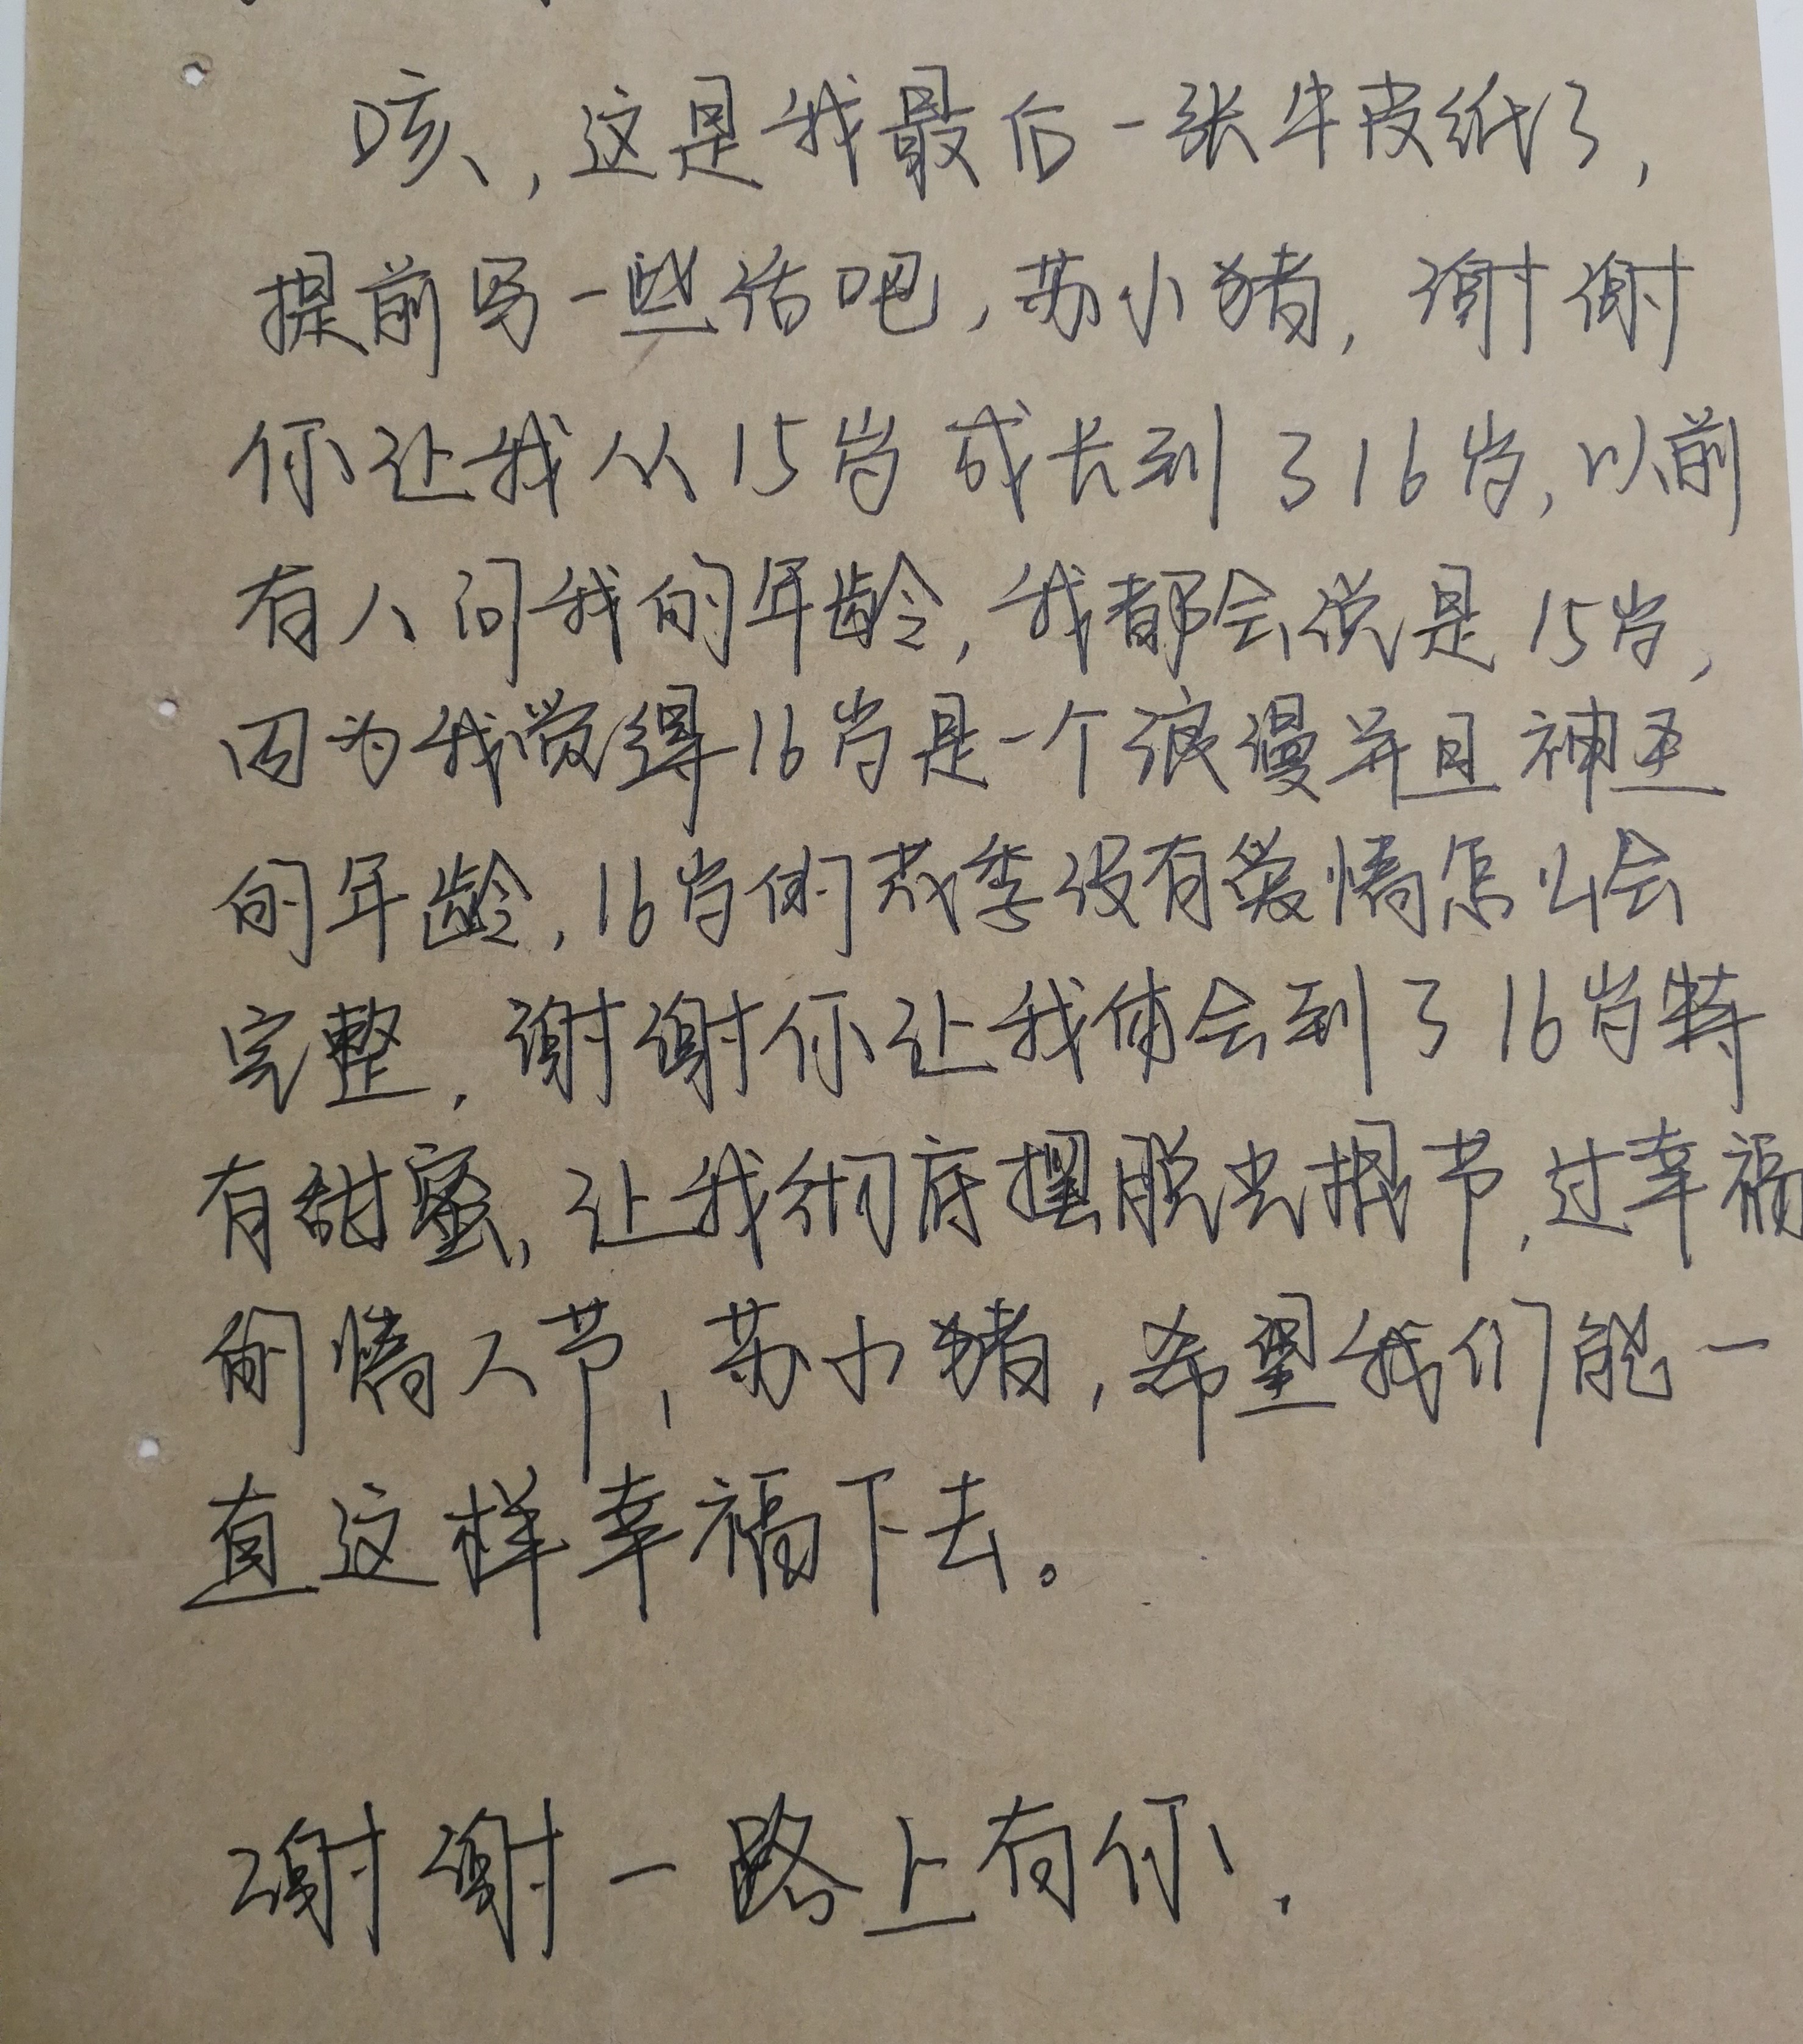 咳，这是我最后一张牛皮纸了，
提前写一些话吧，苏小猪，谢谢
你让我从15岁成长到了16岁，以前
有人问我的年龄，我都会说是15岁，
因为我觉得16岁是一个浪漫并且神圣
的年龄，16岁的花季没有爱情怎么会
完整，谢谢你让我体会到了16岁特
有甜蜜，让我彻底摆脱光棍节，过幸福
的情人节，苏小猪，希望我们能一
直这样幸福下去。
谢谢一路上有你，